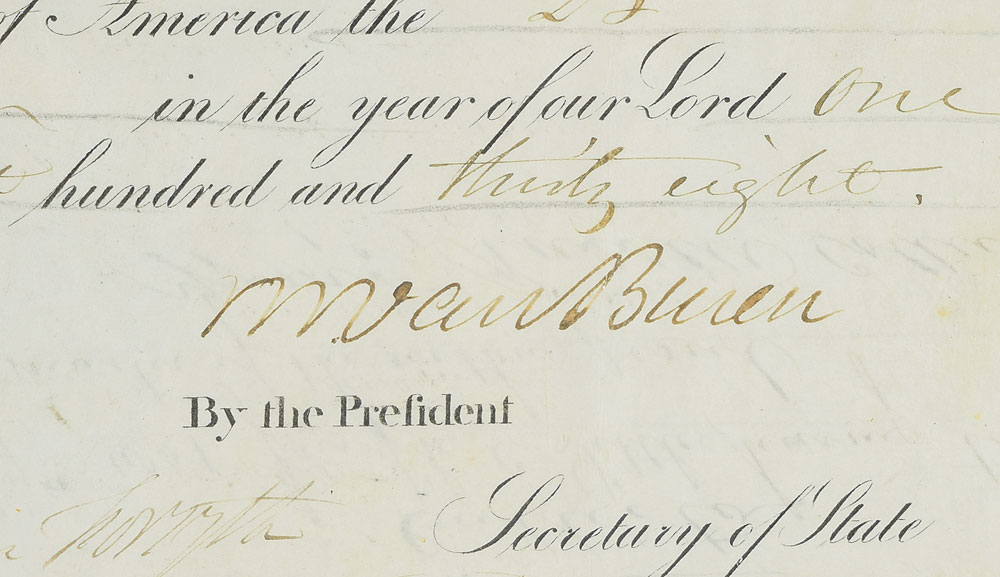 of America the 28
in the year of our Lord one
hundred and thirty eight.
M Van Buren
By the Preſident
Forsyth
Secretary of State